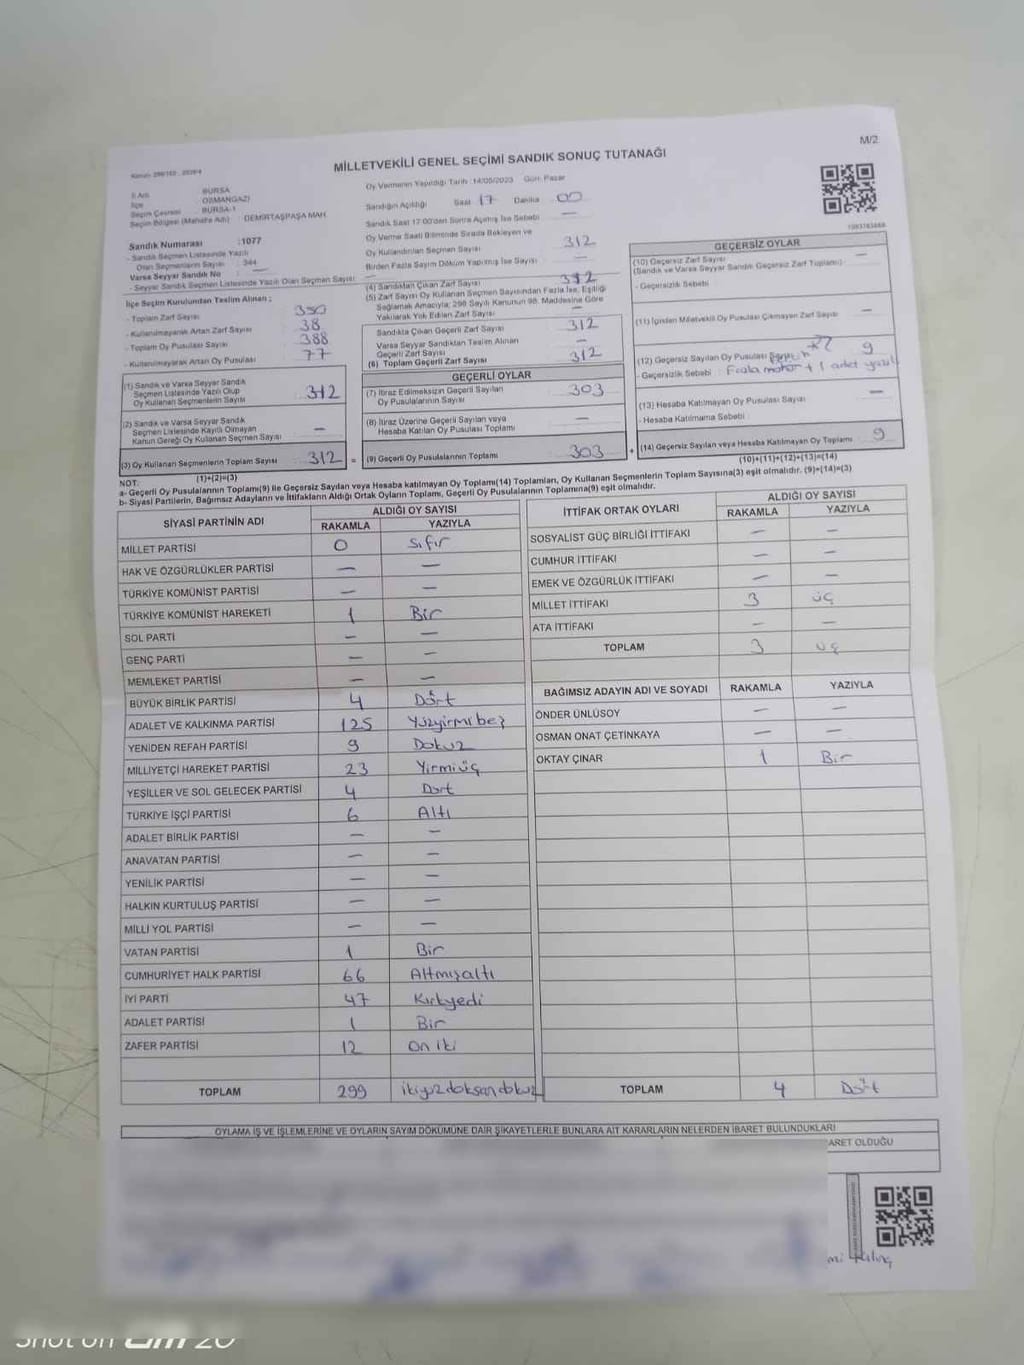 M/2
MİLLETVEKİLİ GENEL SEÇİMİ SANDIK SONUÇ TUTANAĞI
İl Adı : BURSA
İlçe : OSMANGAZİ
Seçim Çevresi : BURSA-1
Seçim Bölgesi (Mahalle Adı) : DEMİRTAŞPAŞA MAH.
Sandık Numarası :1077
- Sandık Seçmen Listesinde Yazılı
Olan Seçmenlerin Sayısı : 344
Varsa Seyyar Sandık No : —
- Seyyar Sandık Seçmen Listesinde Yazılı Olan Seçmen Sayısı : —
İlçe Seçim Kurulundan Teslim Alınan ;
- Toplam Zarf Sayısı : 350
- Kullanılmayarak Artan Zarf Sayısı : 38
- Toplam Oy Pusulası Sayısı : 388
- Kullanılmayarak Artan Oy Pusulası : 77
(1) Sandık ve Varsa Seyyar Sandık
Seçmen Listesinde Yazılı Olup
Oy Kullanan Seçmenlerin Sayısı 312
(2) Sandık ve Varsa Seyyar Sandık
Seçmen Listesinde Kayıtlı Olmayan
Kanun Gereği Oy Kullanan Seçmen Sayısı —
(3) Oy Kullanan Seçmenlerin Toplam Sayısı 312 =
(1)+(2)=(3)
Oy Vermenin Yapıldığı Tarih :14/05/2023 Gün: Pazar
Sandığın Açıldığı Saat 17 Dakika 00
Sandık Saat 17:00'den Sonra Açılmış İse Sebebi —
Oy Verme Saati Bitiminde Sırada Bekleyen ve
Oy Kullandırılan Seçmen Sayısı 312
Birden Fazla Sayım Döküm Yapılmış İse Sayısı —
(4) Sandıktan Çıkan Zarf Sayısı 312
(5) Zarf Sayısı Oy Kullanan Seçmen Sayısından Fazla İse, Eşitliği
Sağlamak Amacıyla; 298 Sayılı Kanunun 98. Maddesine Göre
Yakılarak Yok Edilen Zarf Sayısı —
Sandıkta Çıkan Geçerli Zarf Sayısı 312
Varsa Seyyar Sandıktan Teslim Alınan
Geçerli Zarf Sayısı —
(6) Toplam Geçerli Zarf Sayısı 312
GEÇERLİ OYLAR
(7) İtiraz Edilmeksizin Geçerli Sayılan
Oy Pusulalarının Sayısı 303
(8) İtiraz Üzerine Geçerli Sayılan veya
Hesaba Katılan Oy Pusulası Toplamı —
(9) Geçerli Oy Pusulalarının Toplamı 303 +
GEÇERSİZ OYLAR
(10) Geçersiz Zarf Sayısı —
(Sandık ve Varsa Seyyar Sandık Geçersiz Zarf Toplamı)
- Geçersizlik Sebebi :
(11) İçinden Milletvekili Oy Pusulası Çıkmayan Zarf Sayısı —
(12) Geçersiz Sayılan Oy Pusulası Sayısı 9
- Geçersizlik Sebebi : Fazla mühür + 1 adet yazılı
(13) Hesaba Katılmayan Oy Pusulası Sayısı —
- Hesaba Katılmama Sebebi :
(14) Geçersiz Sayılan veya Hesaba Katılmayan Oy Toplamı 9
(10)+(11)+(12)+(13)=(14)
NOT:
a- Geçerli Oy Pusulalarının Toplamı(9) ile Geçersiz Sayılan veya Hesaba Katılmayan Oy Toplamı(14) Toplamları, Oy Kullanan Seçmenlerin Toplam Sayısına(3) eşit olmalıdır. (9)+(14)=(3)
b- Siyasi Partilerin, Bağımsız Adayların ve İttifakların Aldığı Ortak Oyların Toplamı, Geçerli Oy Pusulalarının Toplamına(9) eşit olmalıdır.
SİYASİ PARTİNİN ADI ALDIĞI OY SAYISI
RAKAMLA YAZIYLA
MİLLET PARTİSİ 0 Sıfır
HAK VE ÖZGÜRLÜKLER PARTİSİ — —
TÜRKİYE KOMÜNİST PARTİSİ — —
TÜRKİYE KOMÜNİST HAREKETİ 1 Bir
SOL PARTİ — —
GENÇ PARTİ — —
MEMLEKET PARTİSİ — —
BÜYÜK BİRLİK PARTİSİ 4 Dört
ADALET VE KALKINMA PARTİSİ 125 Yüzyirmibeş
YENİDEN REFAH PARTİSİ 9 Dokuz
MİLLİYETÇİ HAREKET PARTİSİ 23 Yirmiüç
YEŞİLLER VE SOL GELECEK PARTİSİ 4 Dört
TÜRKİYE İŞÇİ PARTİSİ 6 Altı
ADALET BİRLİK PARTİSİ — —
ANAVATAN PARTİSİ — —
YENİLİK PARTİSİ — —
HALKIN KURTULUŞ PARTİSİ — —
MİLLİ YOL PARTİSİ — —
VATAN PARTİSİ 1 Bir
CUMHURİYET HALK PARTİSİ 66 Altmışaltı
İYİ PARTİ 47 Kırkyedi
ADALET PARTİSİ 1 Bir
ZAFER PARTİSİ 12 On iki
TOPLAM 299 ikiyüzdoksandokuz
İTTİFAK ORTAK OYLARI ALDIĞI OY SAYISI
RAKAMLA YAZIYLA
SOSYALİST GÜÇ BİRLİĞİ İTTİFAKI — —
CUMHUR İTTİFAKI — —
EMEK VE ÖZGÜRLÜK İTTİFAKI — —
MİLLET İTTİFAKI 3 üç
ATA İTTİFAKI — —
TOPLAM 3 üç
BAĞIMSIZ ADAYIN ADI VE SOYADI RAKAMLA YAZIYLA
ÖNDER ÜNLÜSOY — —
OSMAN ONAT ÇETİNKAYA — —
OKTAY ÇINAR 1 Bir
TOPLAM 4 Dört
OYLAMA İŞ VE İŞLEMLERİNE VE OYLARIN SAYIM DÖKÜMÜNE DAİR ŞİKAYETLERLE BUNLARA AİT KARARLARIN NELERDEN İBARET BULUNDUKLARI
ARET OLDUĞU